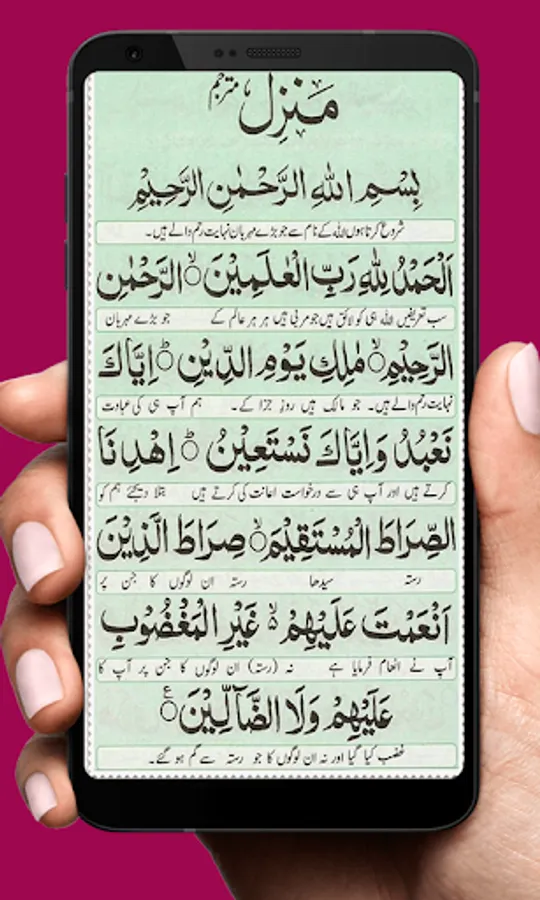 مَنْزِل مترجم
بِسْمِ اللهِ الرَّحْمٰنِ الرَّحِيْمِ
شروع کرتا ہوں اللہ کے نام سے جو بڑے مہربان نہایت رحم والے ہیں۔
اَلْحَمْدُ لِلّٰهِ رَبِّ الْعٰلَمِيْنَ ۙ الرَّحْمٰنِ
سب تعریفیں اللہ ہی کو لائق ہیں جو مربی ہیں ہر ہر عالم کے جو بڑے مہربان
الرَّحِيْمِ ۙ مٰلِكِ يَوْمِ الدِّيْنِ ؕ اِيَّاكَ
نہایت رحم والے ہیں۔ جو مالک ہیں روزِ جزا کے۔ ہم آپ ہی کی عبادت
نَعْبُدُ وَاِيَّاكَ نَسْتَعِيْنُ ؕ اِهْدِنَا
کرتے ہیں اور آپ ہی سے درخواست اعانت کی کرتے ہیں بتلا دیجئے ہم کو
الصِّرَاطَ الْمُسْتَقِيْمَ ۙ صِرَاطَ الَّذِيْنَ
رستہ سیدھا رستہ ان لوگوں کا جن پر
اَنْعَمْتَ عَلَيْهِمْ ۙ غَيْرِ الْمَغْضُوْبِ
آپ نے انعام فرمایا ہے نہ (رستہ) ان لوگوں کا جن پر آپ کا
عَلَيْهِمْ وَلَا الضَّآلِّيْنَ ۧ
غضب کیا گیا اور نہ ان لوگوں کا جو رستہ سے گم ہو گئے۔